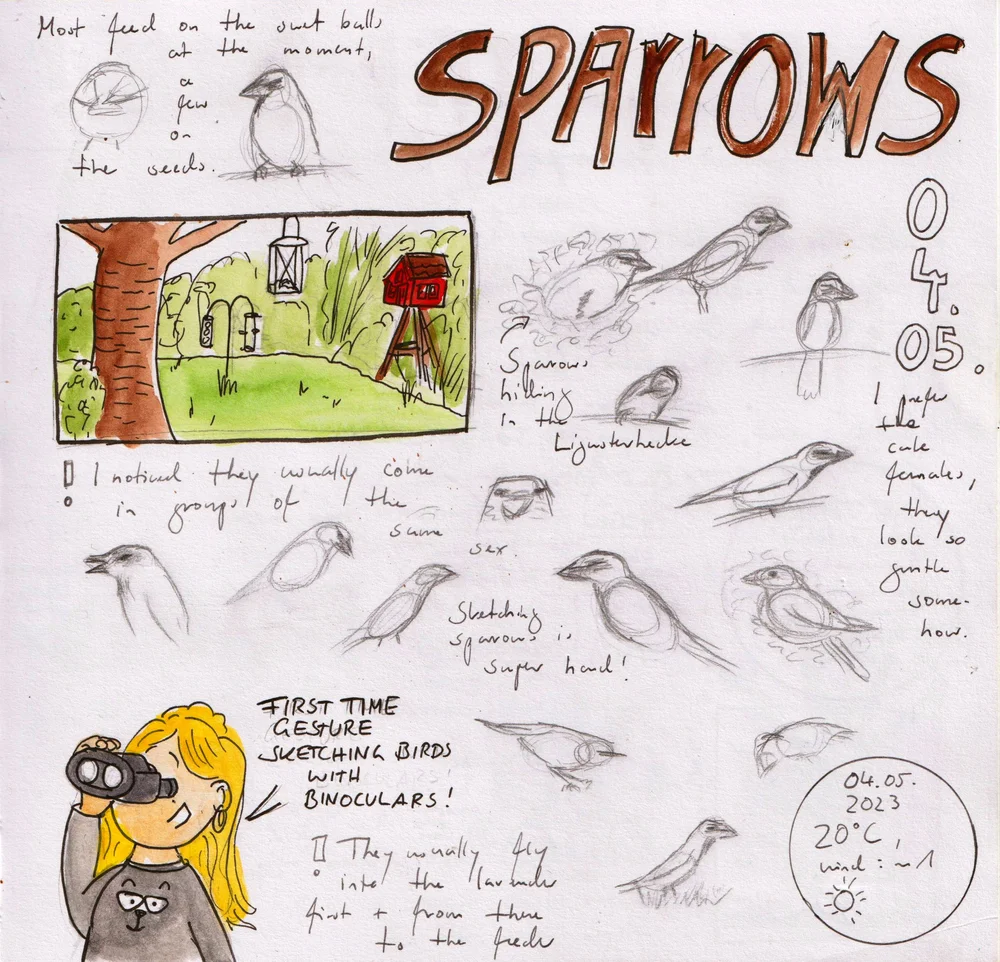 Most feed on the suet balls
at the moment,
a
few
on
the seeds.
SPARROWS
04.
05.
Sparrows
hiding
in the
Ligusterhecke
I prefer
the
cute
females,
they
look so
gentle
some-
how.
! I noticed they usually come
in groups of the
same
sex.
Sketching
sparrows is
super hard!
FIRST TIME
GESTURE
SKETCHING BIRDS
WITH
BINOCULARS!
! They usually fly
into the lavender
first + from there
to the feeder
04.05.
2023
20°C,
wind: ~1